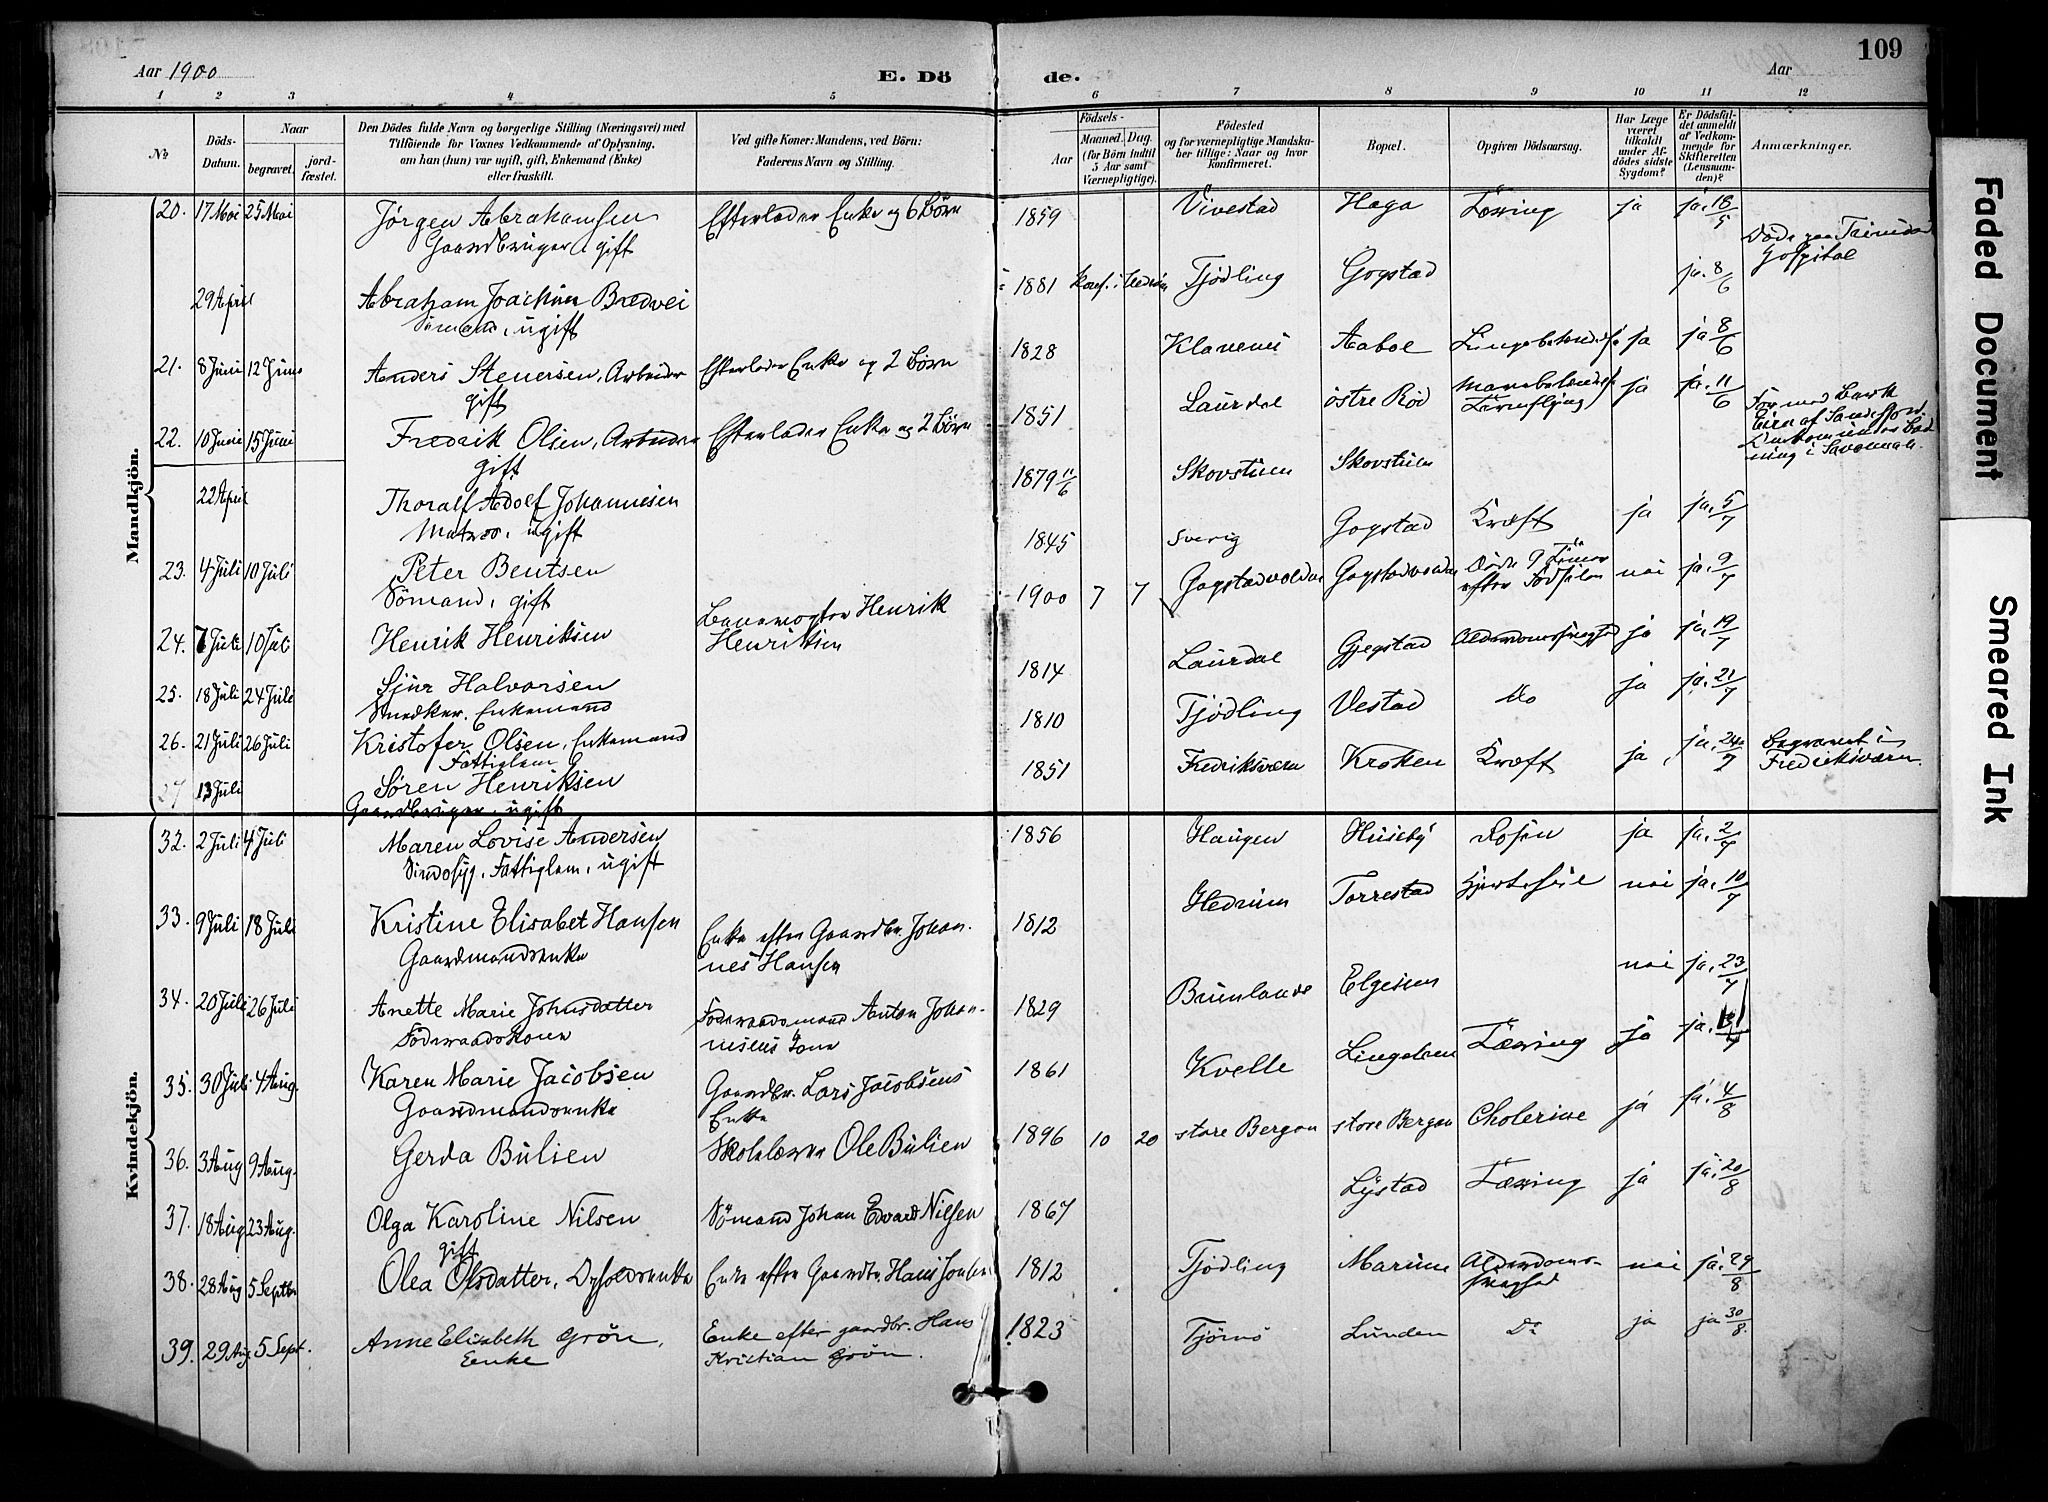 109
Aar 1900
E. Dö
de.
Aar
1 2 3 4 5 6 7 8 9 10 11 12
No
Döds-
Datum.
Naar
begravet.
jord-
fæstet.
Den Dödes fulde Navn og borgerlige Stilling (Næringsvei) med
Tilföiende for Voxnes Vedkommende af Oplysning,
om han (hun) var ugift, gift, Enkemand (Enke)
eller fraskilt.
Ved gifte Koner: Mandens, ved Börn:
Faderens Navn og Stilling.
Födsels-
Aar
Maaned.
Dag.
(for Börn indtil
5 Aar samt
Værnepligtige).
Födested
og for værnepligtige Mandska-
ber tillige: Naar og hvor
konfirmeret.
Bopæl.
Opgiven Dödsaarsag.
Har Læge
været
tilkaldt
under Af-
dödes sidste
Sygdom?
Er Dödsfal-
det anmeldt
af Vedkom-
mende for
Skifteretten
(Lensman-
den)?
Anmærkninger.
Mandkjön.
20. 17 Mai 25 Mai Jørgen Abrahamsen Efterlader Enke og 6 Börn 1859 Vivestad Haga Tæring ja ja. 18/5
Gaardbruger, gift
Hospital
29 April Abraham Joachim Bredvei 1881 Tjödling Gogstad ja. 8/6
Sömand, ugift
21. 8 Juni 12 Juni Anders Stenersen, Arbeider Efterlader Enke og 2 Börn 1828 Klavenes Aaboe ja ja 8/6
gift
22. 10 Juni 15 Juni Fredrik Olsen, Arbeider Efterlader Enke og 2 Börn 1851 Laurdal östre Röd ja ja. 11/6
gift
22 April Thoralf Adolf Johannesen 1879 11/6 Skovstuen Skovstuen
Matros, ugift
23. 4 Juli 10 Juli Peter Bentsen 1845 Sverig Gogstad Kræft ja ja. 5/7
Sömand, gift
24. 7 Juli 10 Juli Henrik Henriksen Banevogter Henrik 1900 7 7 Gogstadvolden Gogstadvolden Döde 9 Timer nei ja. 9/7
Henriksen
efter Födselen
25. 18 Juli 24 Juli Sjur Halvorsen 1814 Laurdal Gjegstad ja ja. 19/7
Snedker, Enkemand
26. 21 Juli 26 Juli Kristofer Olsen, Enkemand 1810 Tjödling Vestad Do ja ja. 21/7
Fattiglem
27 13 Juli Sören Henriksen 1851 Fredriksværn Kroken Kræft ja ja. 24/7 Begravet i
Fredriksværn.
Gaardbruger, ugift
Kvindekjön.
32. 2 Juli 4 Juli Maren Lovise Andersen 1856 Haugen Huseby Rosen ja ja. 2/7
Sindssyg, Fattiglem, ugift
33. 9 Juli 18 Juli Kristine Elisabet Hansen Enke efter Gaardbr. Johan- 1812 Hedrum Torrestad Hjertefeil nei ja. 10/7
Gaardmandsenke nes Hansen
34. 20 Juli 26 Juli Anette Marie Johnsdatter Föderaadsmand Anton Johan- 1829 Brunlanes Elgesem nei ja. 23/7
Föderaadskone nesens Kone
35. 30 Juli 4 Aug. Karen Marie Jacobsen Gaardbr. Lars Jacobsens 1861 Kvelle Lingelem Tæring ja ja.
Gaardmandsenke Enke
36. 3 Aug 9 Aug. Gerda Bulien Skolelærer Ole Bulien 1896 10 20 store Bergan store Bergan Cholerine ja ja. 4/8
37. 18 Aug 23 Aug. Olga Karoline Nilsen Sömand Johan Edvard Nilsen 1867 Lystad Tæring ja ja. 20/8
gift
38. 28 Aug 5 Septbr Olea Olsdatter, Enke efter Gaardbr. Hans 1812 Tjödling Marum Alderdoms- nei ja. 29/8
svaghed
39. 29 Aug 5 Sept. Anne Elisabeth Grön, Enke efter gaardbr. Hans 1823 Tjömö Lunden Do ja ja 30/8.
Enke Kristian Grön.
Faded Document
Smeared Ink